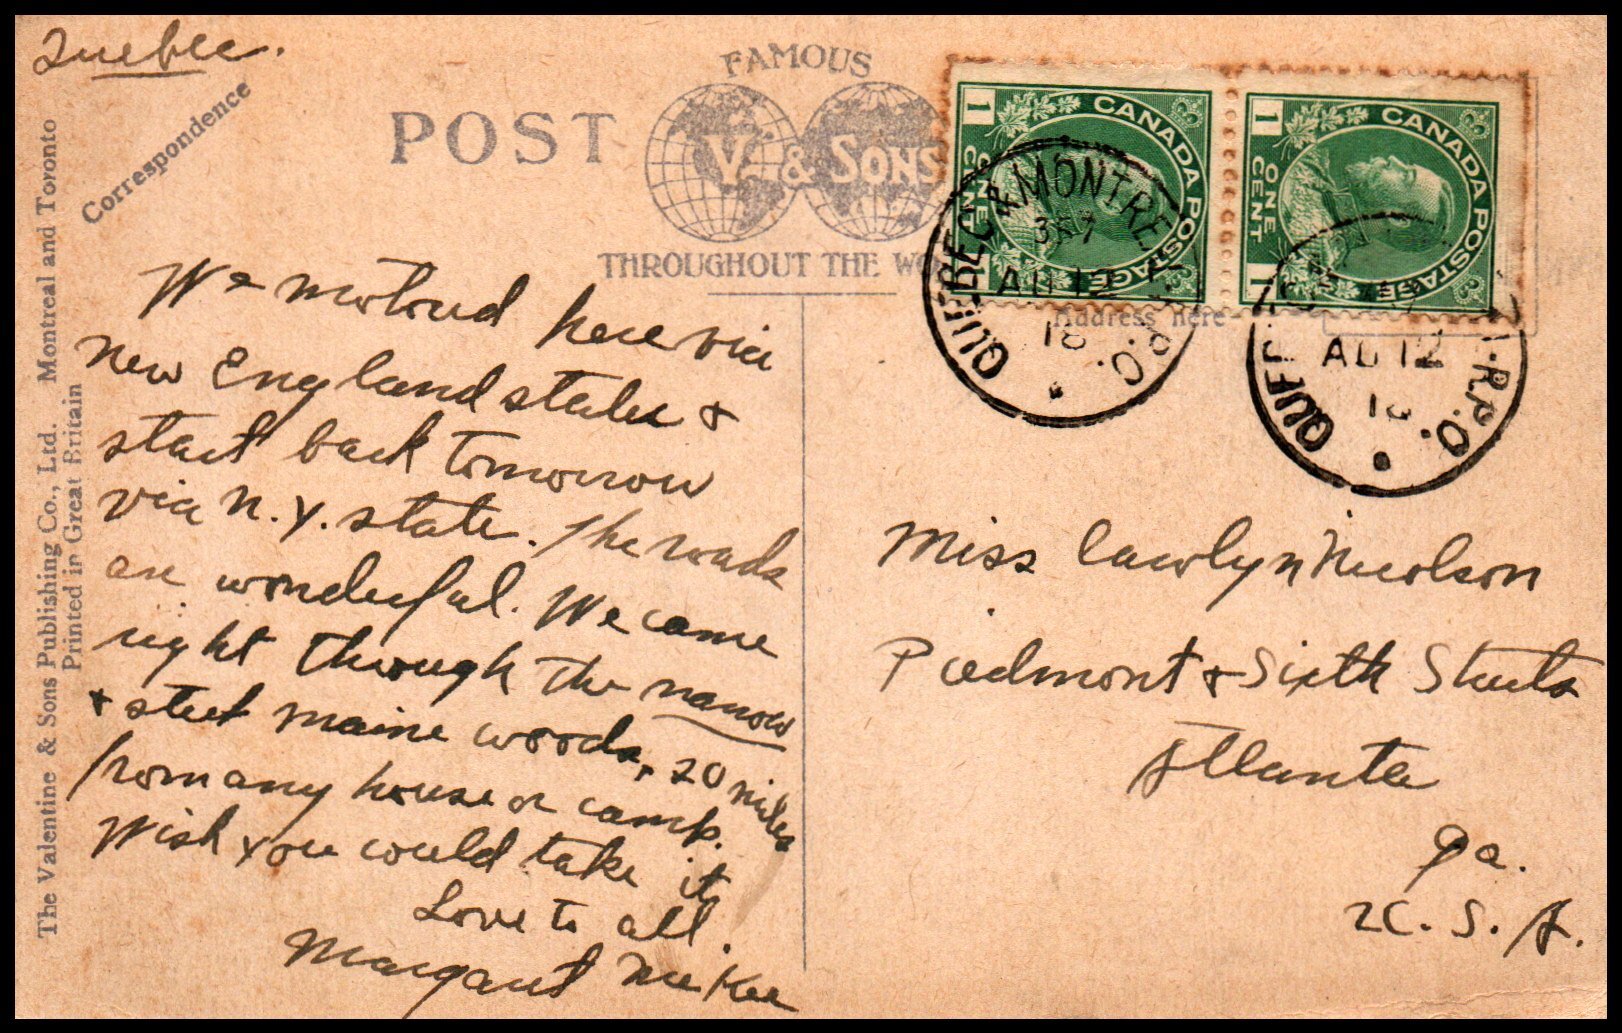 Quebec.
Correspondence
The Valentine & Sons Publishing Co., Ltd. Montreal and Toronto
Printed in Great Britain
POST
FAMOUS
V. & SONS
THROUGHOUT THE WO
Address here
1 CANADA POSTAGE 1
ONE CENT
1 CANADA POSTAGE 1
ONE CENT
QUEBEC & MONTREAL R.P.O.
AU 12
18
QUE R.P.O.
AU 12
18
We motored here via
New England states &
start back tomorrow
via N.Y. state. The roads
are wonderful. We came
right through the narrow
& steep Maine woods, 20 miles
from any house or camp.
Wish you could take it
Love to all.
Margaret McKee
Miss Carolyn Nicolson
Piedmont & Sixth Streets
Atlanta
Ga.
U.S.A.